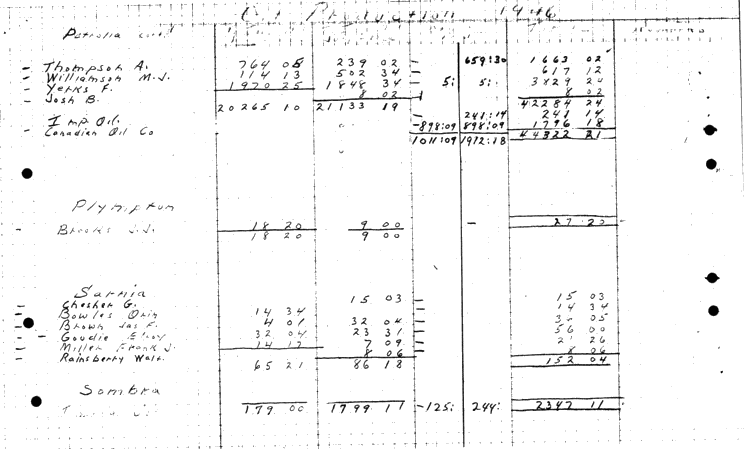 Oil Production 1946
Petrolia cont'd
Thompson A. 764 05 239 02 - 659:30 1663 02
Williamson M.J. 114 13 502 34 - 617 12
Yerks F. 1970 25 1848 34 - 5: 5: 3829 24
Josh B. 8 02 8 02
20265 10 21133 19 42284 24
Imp Oil. - 241:14 241 14
Canadian Oil Co -898:09 898:09 1796 18
1011:09 1912:18 44322 21
Plympton
Brooks J.J. 18 20 9 00 - 27 20
18 20 9 00
Sarnia
Chesher G. 15 03 - 15 03
Bowles Orin 14 34 - 14 34
Brown Jas F. 4 01 32 04 - 05
Goudie Elroy 32 04 23 31 - 56 00
Miller Frank J. 14 17 7 09 - 21 26
Rainsberry Walt. 8 06 - 8 06
65 21 86 18 152 04
Sombra
179 00 1799 11 -125: 244: 2347 11